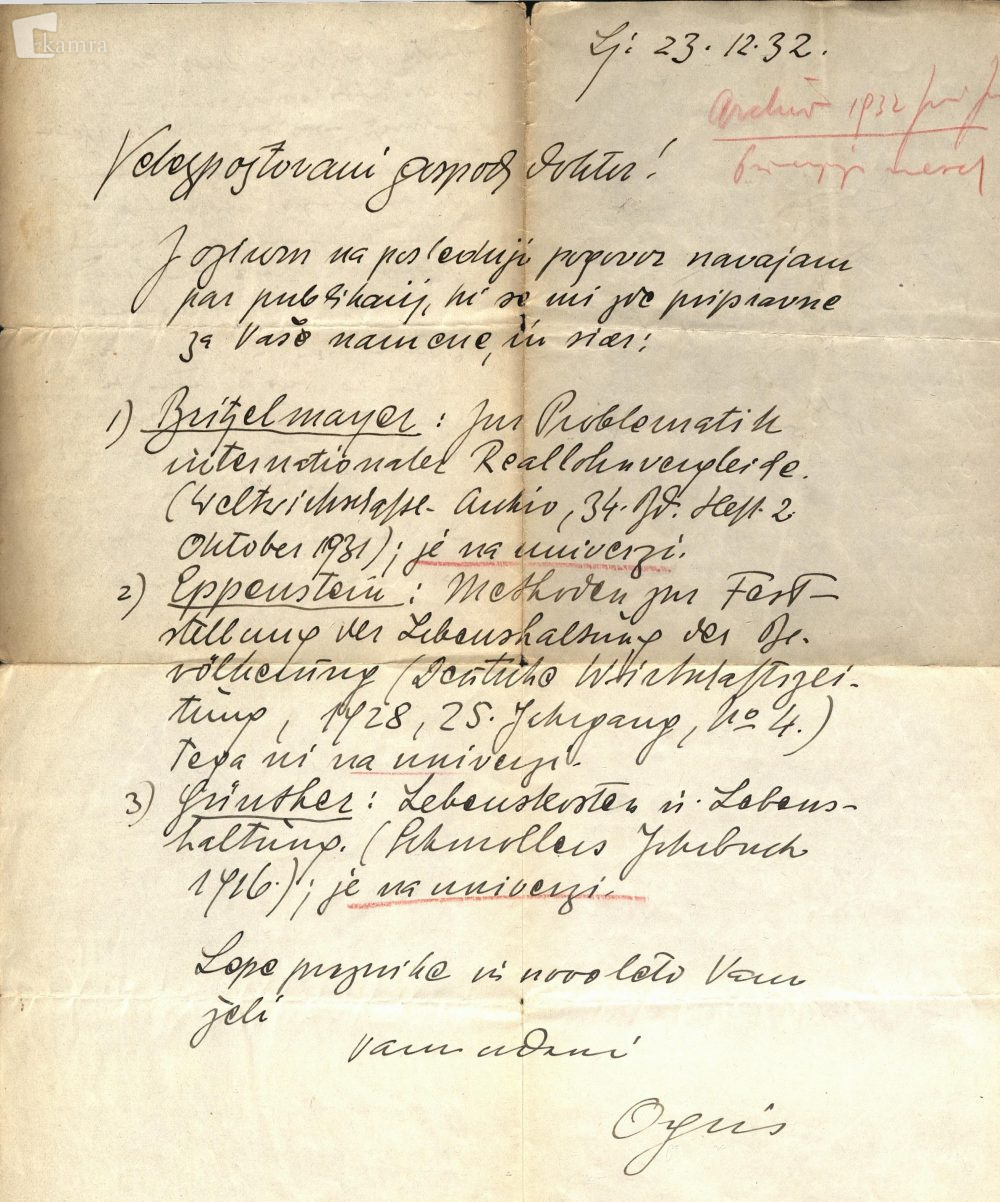 kamra
Lj. 23. 12. 32.
Archiv 1932
Velespoštovani gospod doktor!
Z ozirom na poslednji pogovor navajam
par publikacij, ki se mi zde pripravne
za Vaše namene, in sicer:
1) Britzelmayer: Zur Problematik
internationaler Reallohnvergleiche.
(Weltwirtschaftl. Archiv, 34. Bd. Heft. 2
Oktober 1931); je na univerzi.
2) Eppenstein: Methoden zur Fest-
stellung der Lebenshaltung der Be-
völkerung (Deutsche Wirtschaftszei-
tung, 1928, 25. Jahrgang, No 4.)
Tega ni na univerzi.
3) Günther: Lebenskosten u. Lebens-
haltung. (Schmollers Jahrbuch
1916.); je na univerzi.
Lepe praznike in novo leto Vam
želi
Vam udani
Ogris